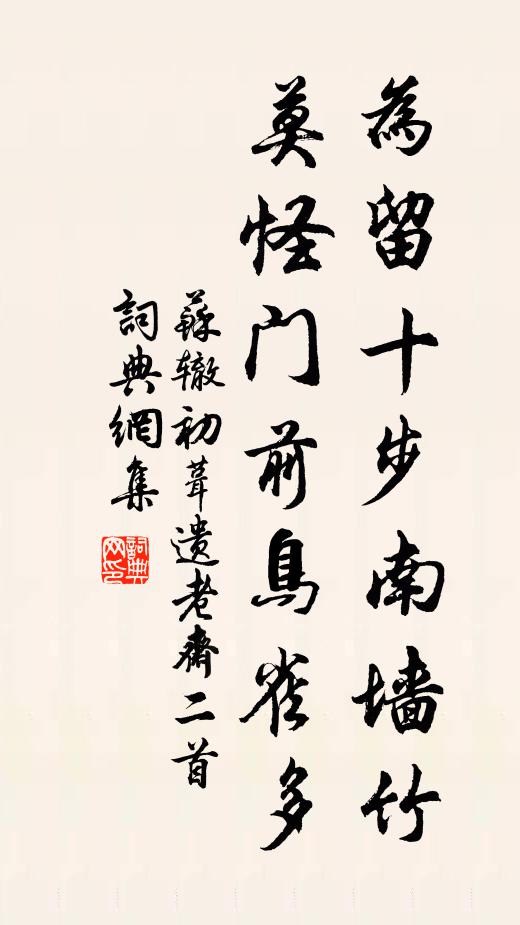 為留十步南墙竹
莫怪门前鳥雀多
蘇辙初葺遗老齋二首
詞典網集
詞典
网印